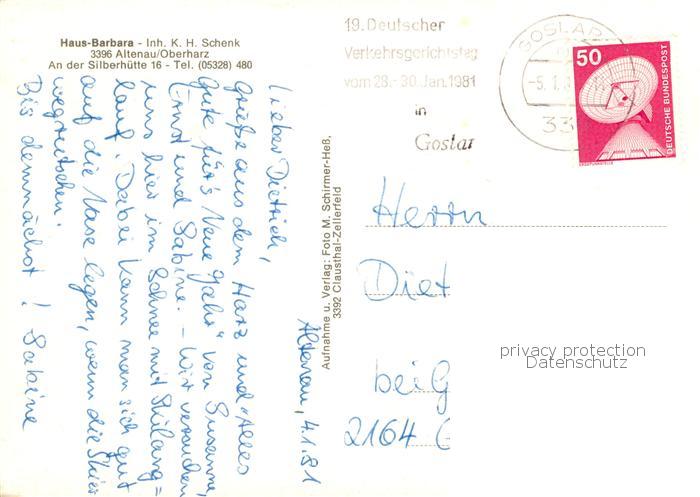 Haus-Barbara - Inh. K. H. Schenk
3396 Altenau/Oberharz
An der Silberhütte 16 - Tel. (05328) 480
19. Deutscher
Verkehrsgerichtstag
vom 28.-30. Jan. 1981
in
Goslar
GOSLAR
-5.1.8
33
50
DEUTSCHE BUNDESPOST
ERDEFUNKSTELLE
Altenau, 4.1.81
Lieber Dietrich,
Grüße aus dem Harz und "Alles
Gute für's Neue Jahr" von Susanne,
Ernst und Sabine. - Wir versuchen
uns hier im Schnee mit Skilang=
lauf. Dabei kann man sich gut
auf die Nase legen, wenn die Skier
wegrutschen.
Bis demnächst! Sabine
Aufnahme u. Verlag: Foto M. Schirmer-Heß,
3392 Clausthal-Zellerfeld
Herrn
Diet
bei G
2164
privacy protection
Datenschutz